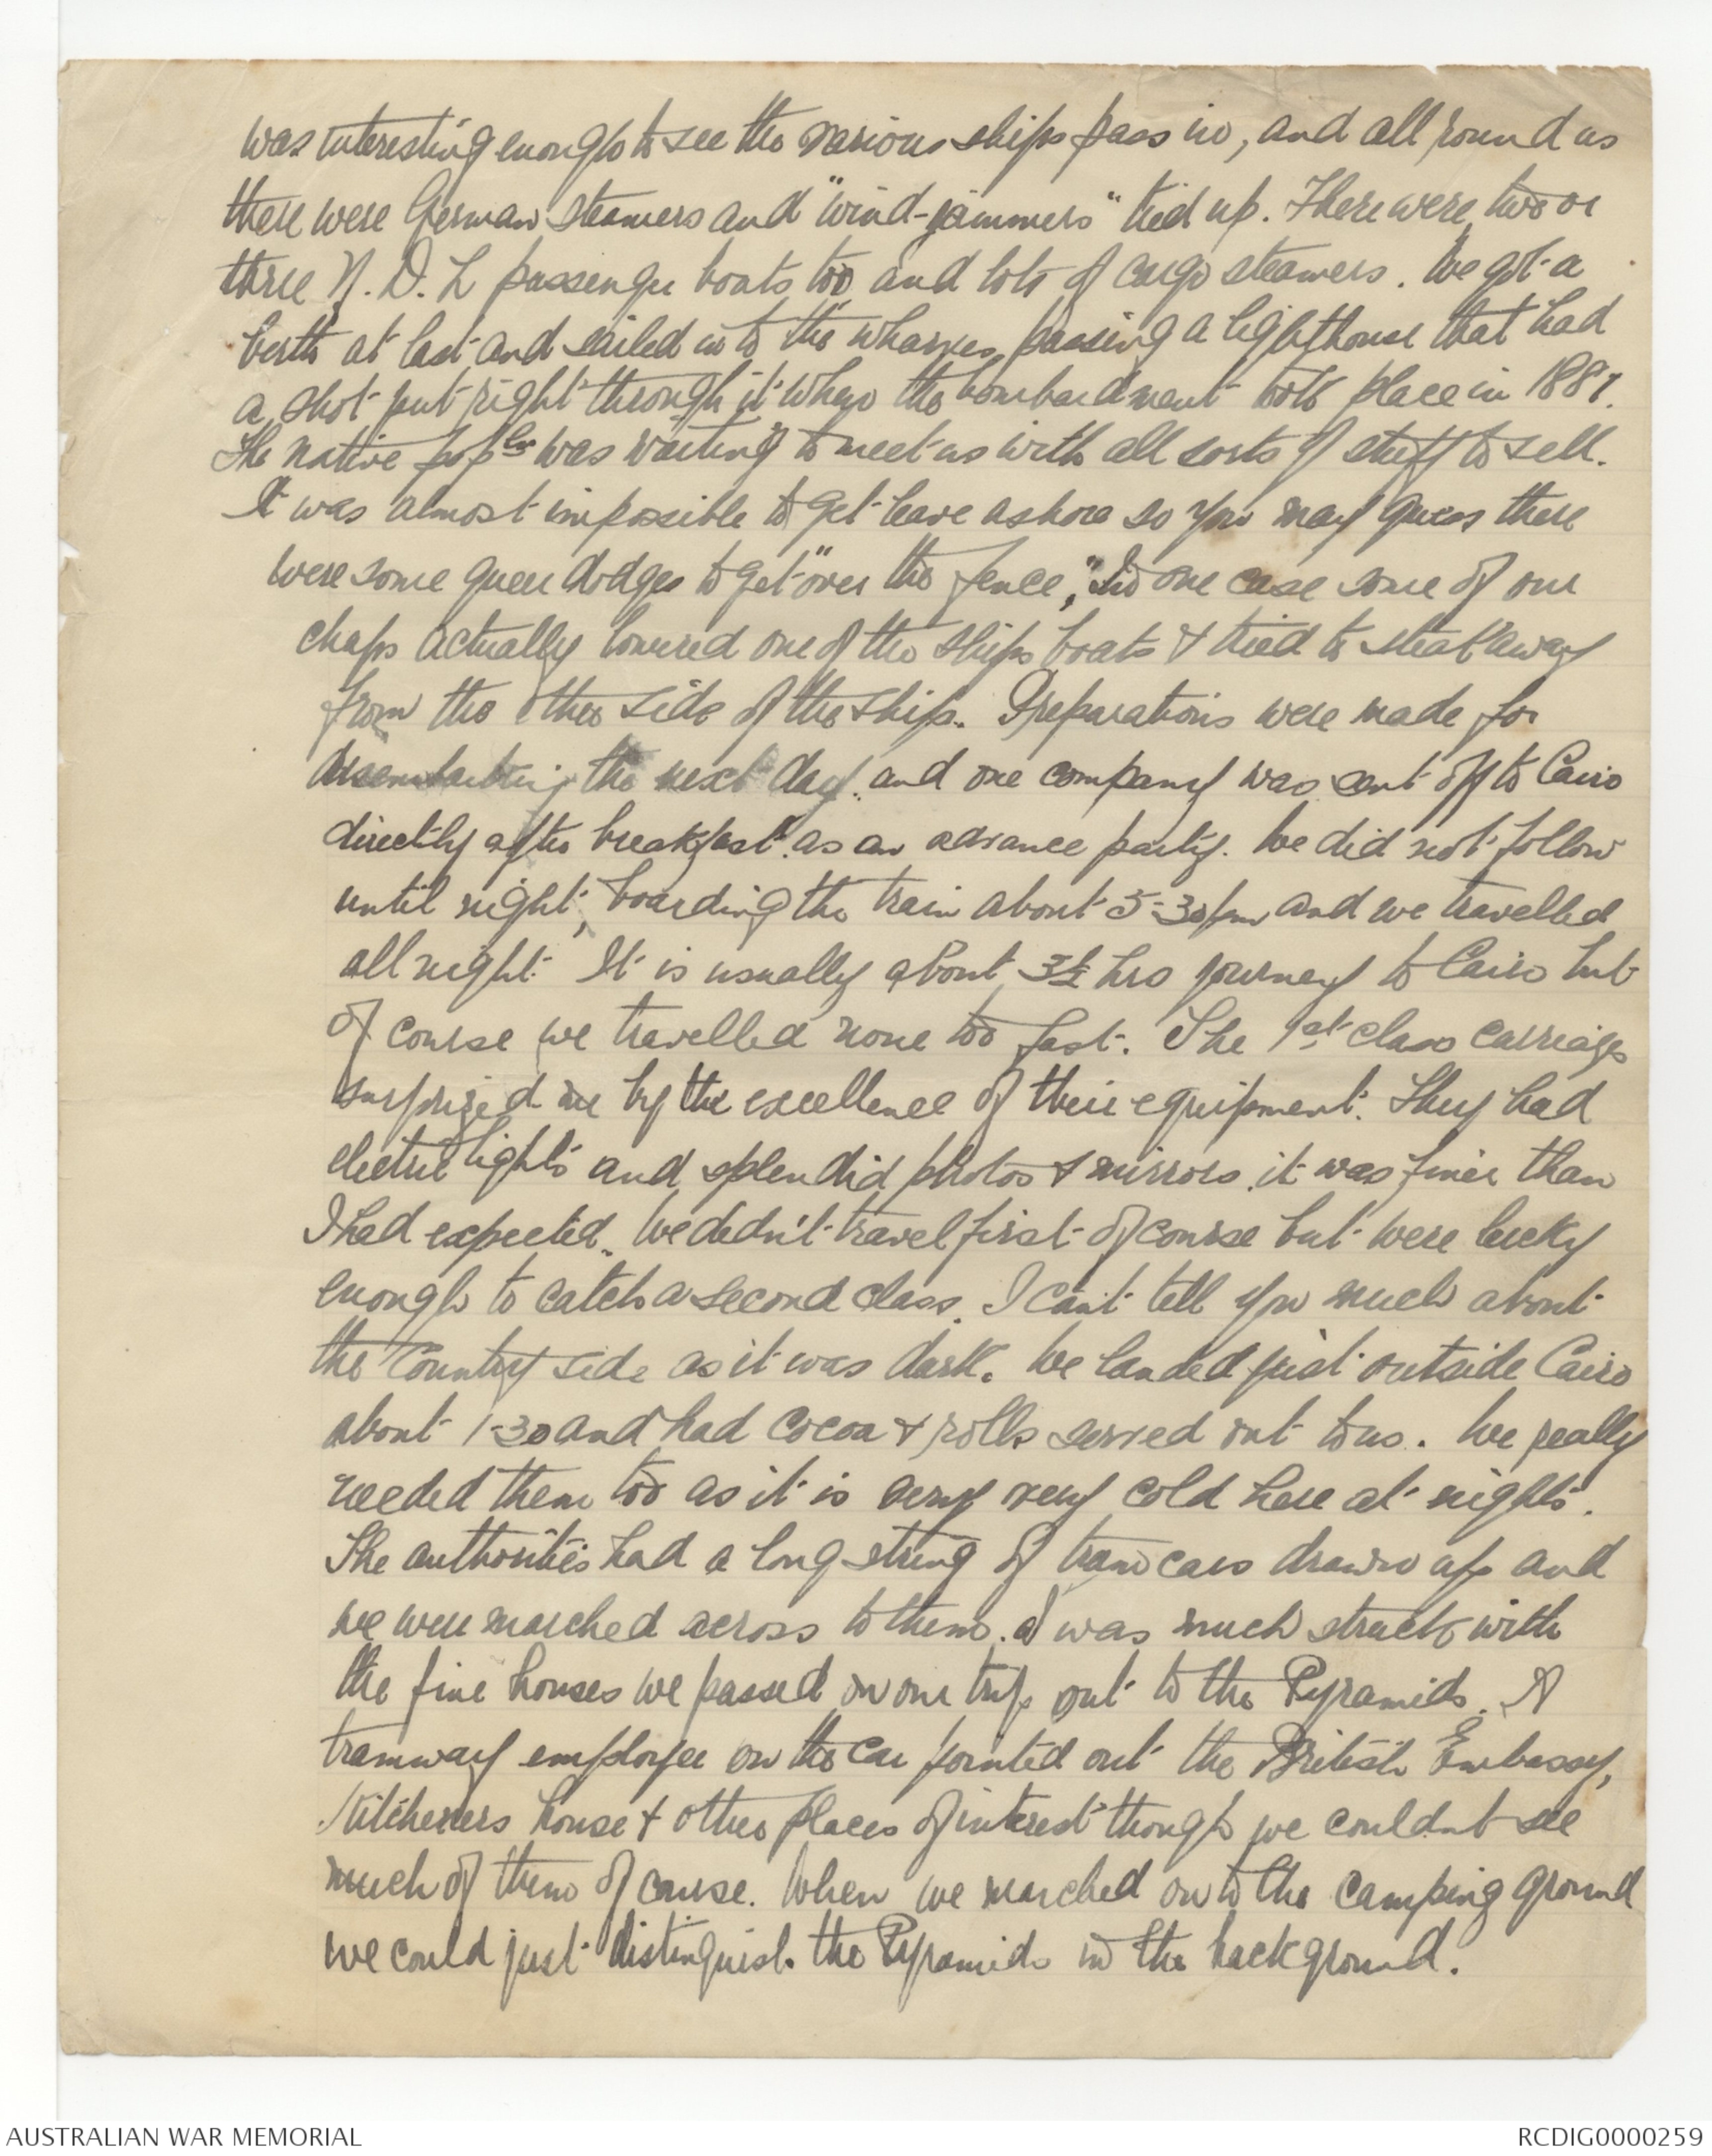 was interesting enough to see the various ships pass in, and all round us
there were German steamers and "wind-jammers" tied up. There were two or
three N. D. L passenger boats too and lots of cargo steamers. We got a
berth at last and sailed in to the wharves passing a lighthouse that had
a shot put right through it when the bombardment took place in 1887.
The native popln was waiting to meet us with all sorts of stuff to sell.
It was almost impossible to get leave ashore so you may guess there
were some queer dodges to get "over the fence," In one case some of our
chaps actually lowered one of the ships boats & tried to steal away
from the other side of the ship. Preparations were made for
disembarking the next day, and one company was sent off to Cairo
directly after breakfast as an advance party. We did not follow
until night, boarding the train about 5-30pm and we travelled
all night. It is usually about 3½ hrs journey to Cairo but
of course we travelled none too fast. The 1st class carriages
surprised me by the excellence of their equipment. They had
electric lights and splendid photos & mirrors, it was finer than
I had expected. We didn't travel first of course but were lucky
enough to catch a second class. I can't tell you much about
the Country side as it was dark. We landed just outside Cairo
about 1-30 and had Cocoa & rolls served out to us. We really
needed them too as it is very very cold here at nights.
The authorities had a long string of tram cars drawn up and
we were marched across to them. I was much struck with
the fine houses we passed on our trip out to the Pyramids. A
tramway employee on the car pointed out the British Embassy,
Kitcheners house & other places of interest though we couldnt see
much of them of course. When we marched on to the camping ground
we could just distinguish the Pyramids in the background.
AUSTRALIAN WAR MEMORIAL
RCDIG0000259